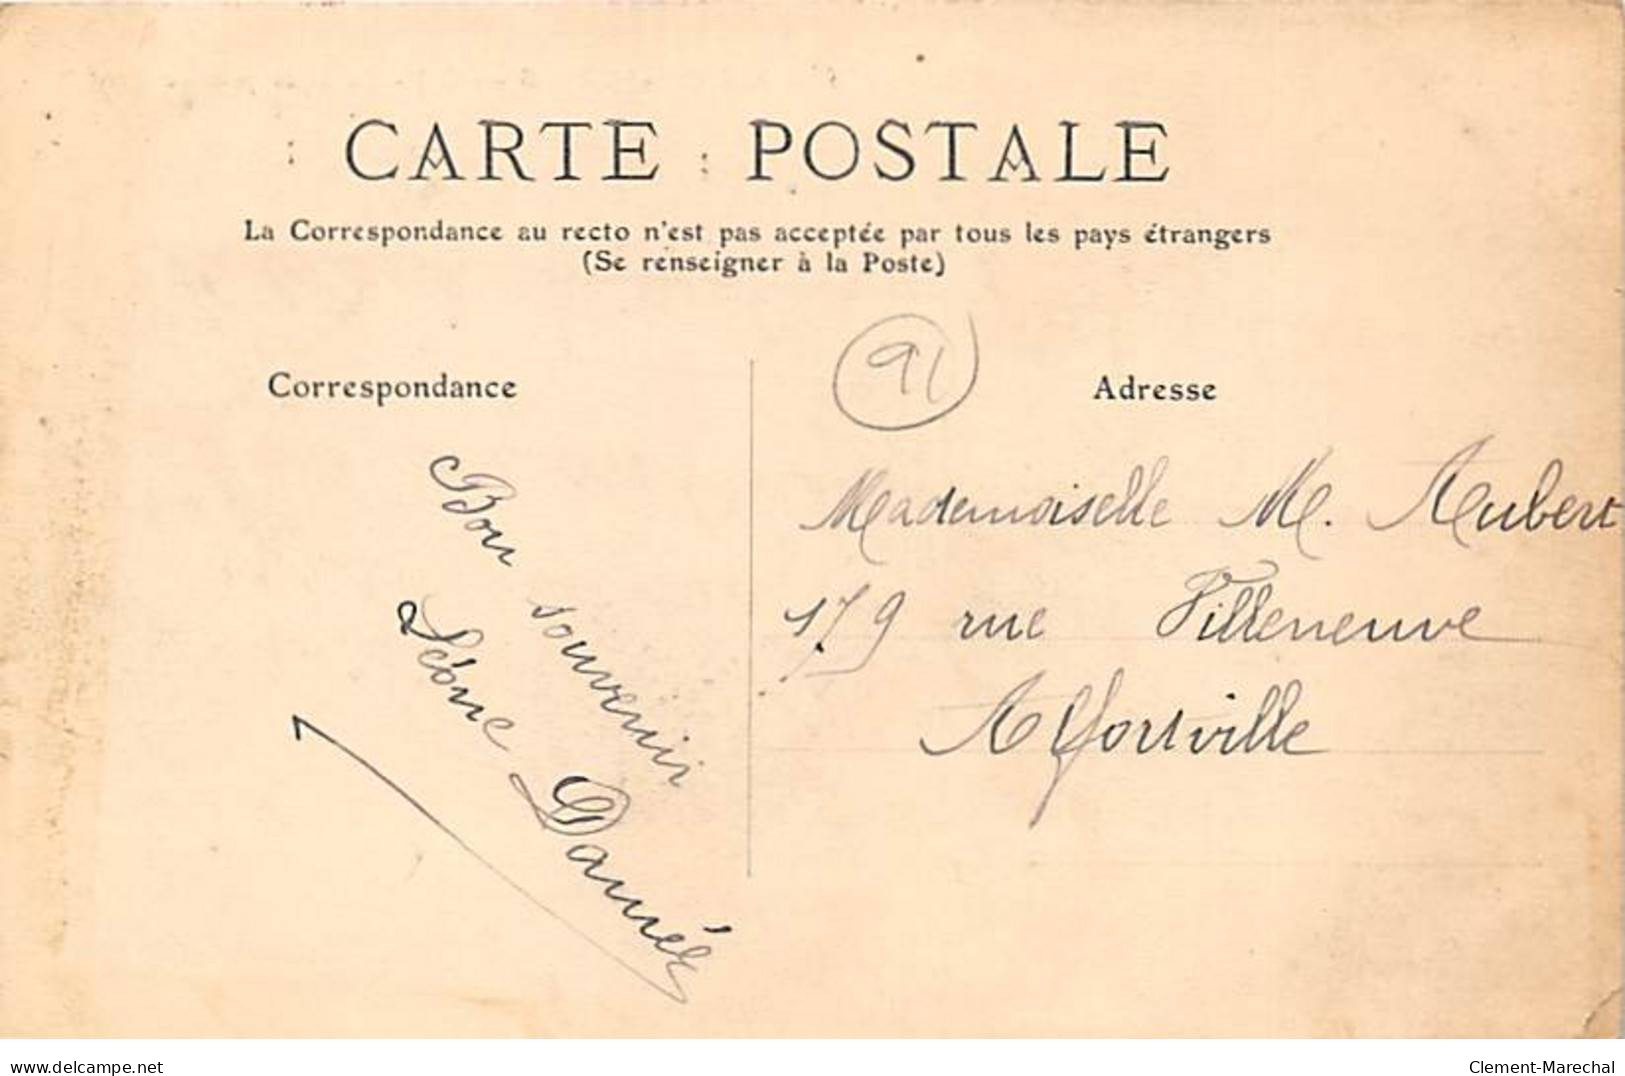 CARTE POSTALE
La Correspondance au recto n'est pas acceptée par tous les pays étrangers
(Se renseigner à la Poste)
91
Correspondance
Bon souvenir
Léone
Adresse
Mademoiselle M. Aubert
179 rue Villeneuve
Alfortville
delcampe.net
Clement-Marechal